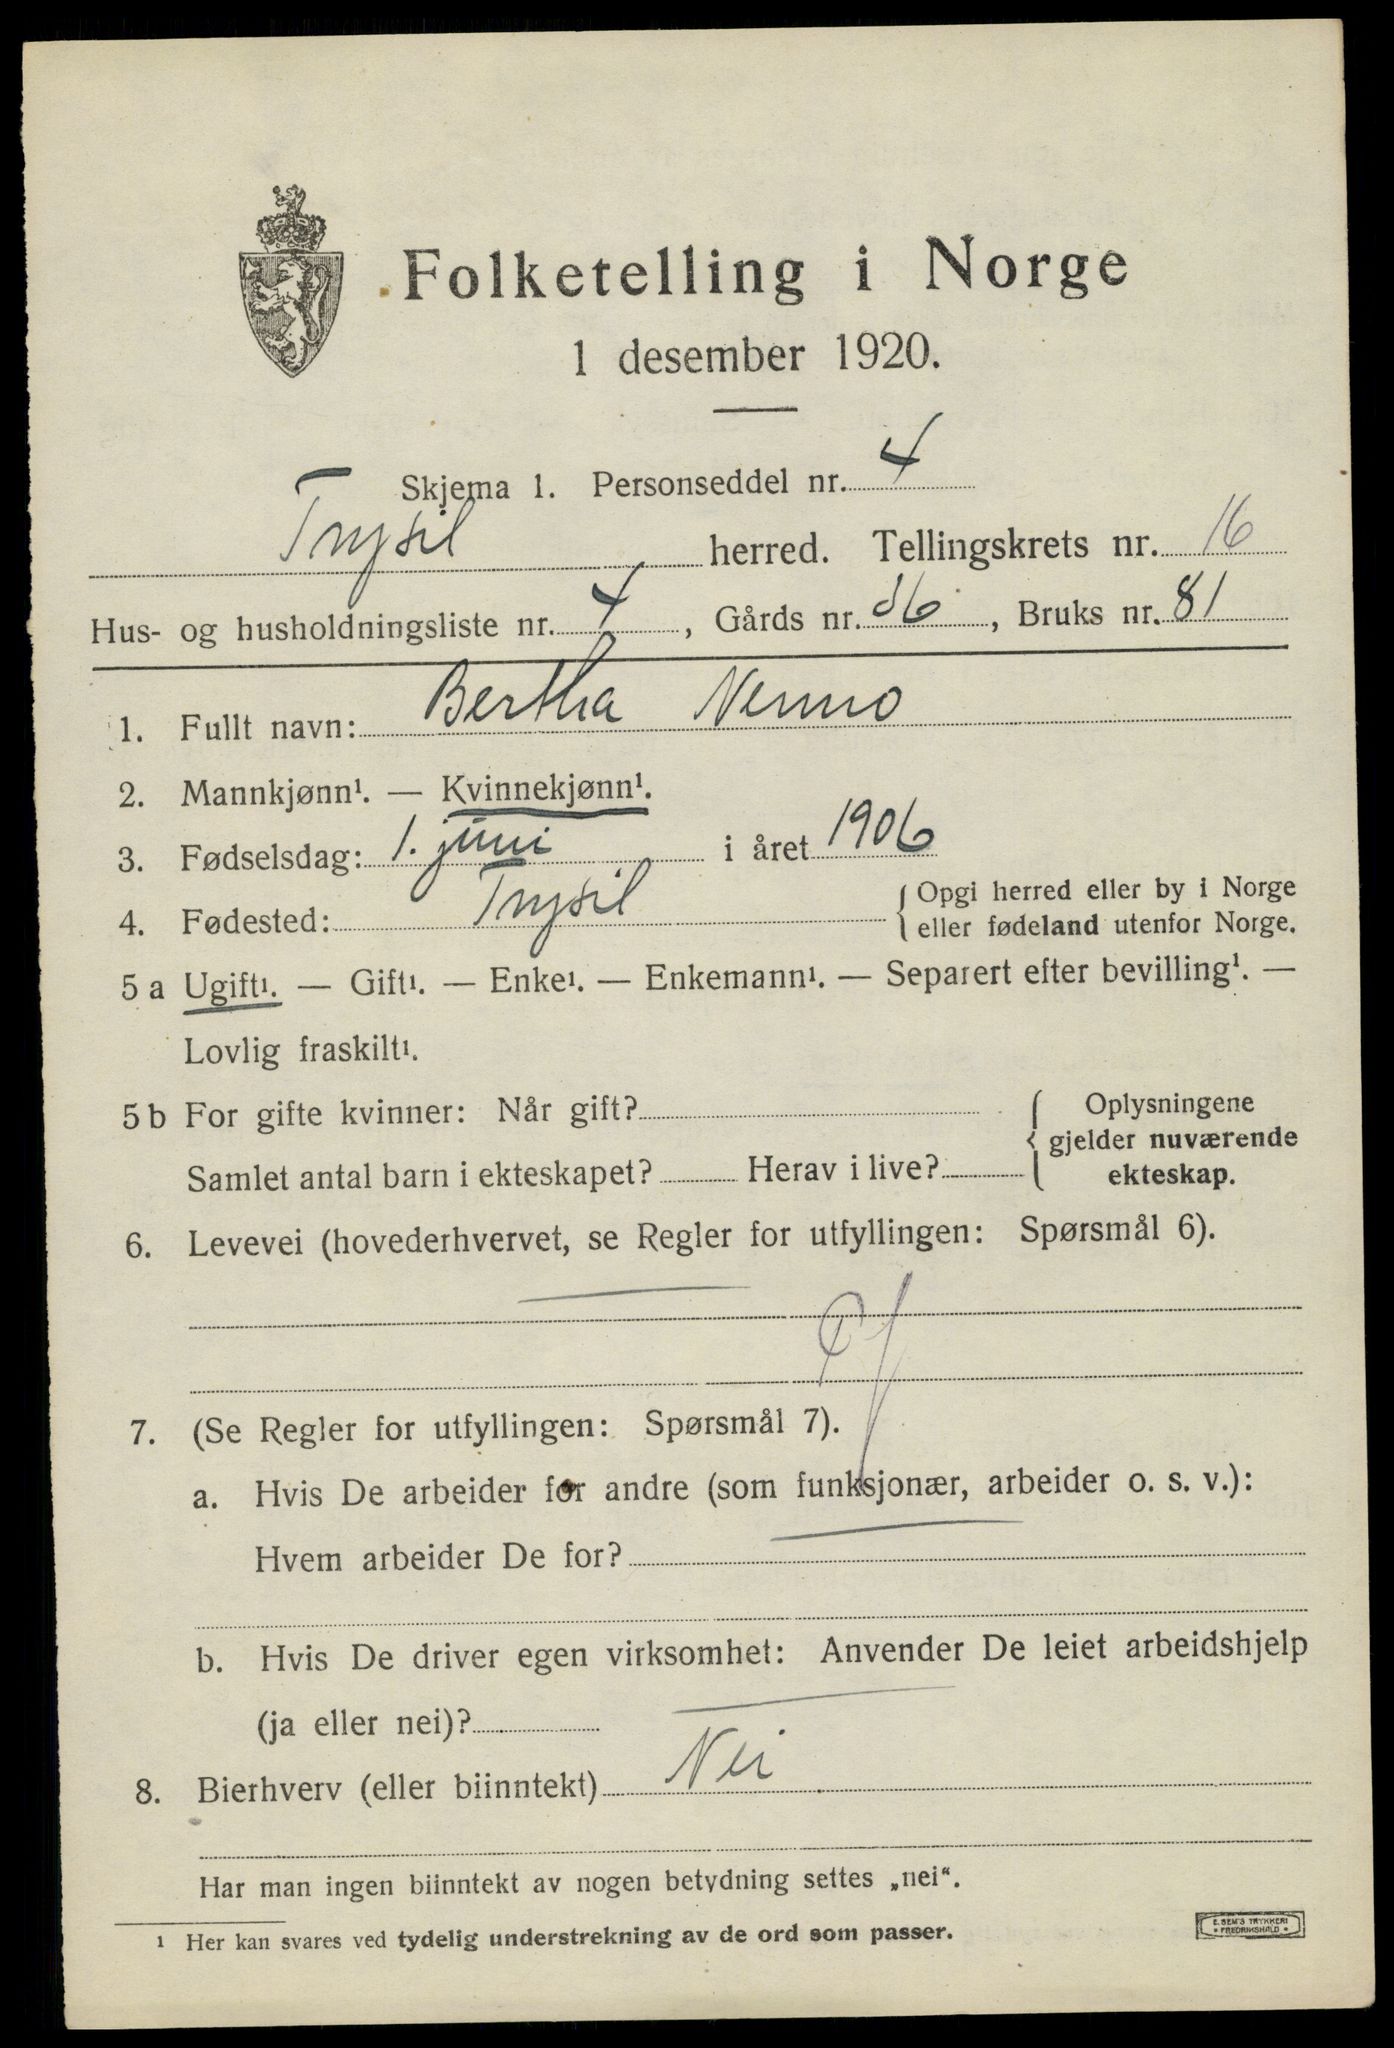 Folketelling i Norge
1 desember 1920.
Skjema 1. Personseddel nr. 4
Trysil herred. Tellingskrets nr. 16
Hus- og husholdningsliste nr. 4, Gårds nr. 36, Bruks nr. 81
1. Fullt navn: Bertha Nermo
2. Mannkjønn¹. — Kvinnekjønn¹.
3. Fødselsdag: 1. juni i året 1906
4. Fødested: Trysil { Opgi herred eller by i Norge
eller fødeland utenfor Norge.
5 a Ugift¹. — Gift¹. — Enke¹. — Enkemann¹. — Separert efter bevilling¹. —
Lovlig fraskilt¹.
5 b For gifte kvinner: Når gift? { Oplysningene
gjelder nuværende
Samlet antal barn i ekteskapet? Herav i live? ekteskap.
6. Levevei (hovederhvervet, se Regler for utfyllingen: Spørsmål 6).
7. (Se Regler for utfyllingen: Spørsmål 7).
a. Hvis De arbeider for andre (som funksjonær, arbeider o. s. v.):
Hvem arbeider De for?
b. Hvis De driver egen virksomhet: Anvender De leiet arbeidshjelp
(ja eller nei)?
8. Bierhverv (eller biinntekt) Nei
Har man ingen biinntekt av nogen betydning settes „nei“.
¹ Her kan svares ved tydelig understrekning av de ord som passer.
E. SEM'S TRYKKERI
FREDRIKSHALD